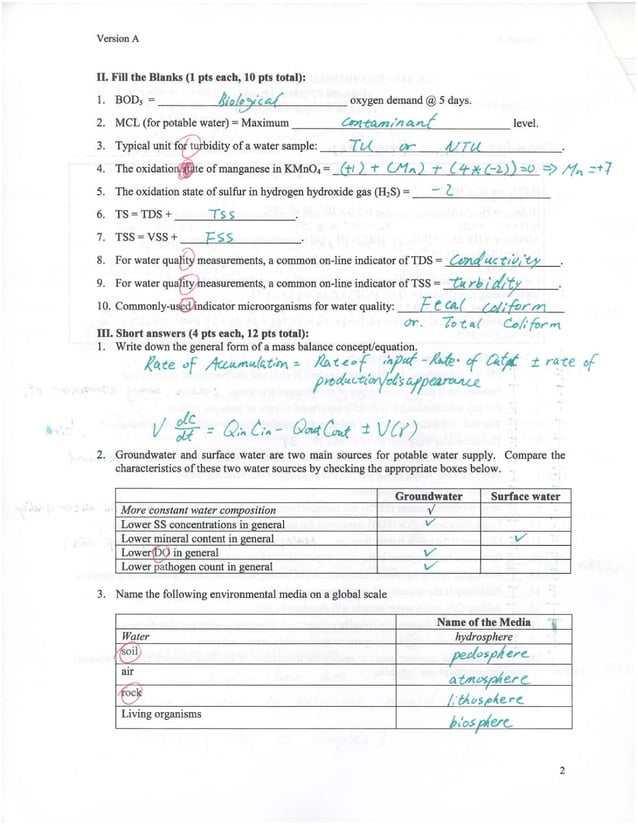 Version A
II. Fill the Blanks (1 pts each, 10 pts total):
1. BOD5 = Biological oxygen demand @ 5 days.
2. MCL (for potable water) = Maximum Contaminant level.
3. Typical unit for turbidity of a water sample: TU or NTU.
4. The oxidation state of manganese in KMnO4 = (+1) + (Mn) + (4*(-2))=0 => Mn=+7
5. The oxidation state of sulfur in hydrogen hydroxide gas (H2S) = -2
6. TS = TDS + TSS.
7. TSS = VSS + FSS.
8. For water quality measurements, a common on-line indicator of TDS = Conductivity.
9. For water quality measurements, a common on-line indicator of TSS = turbidity.
10. Commonly-used indicator microorganisms for water quality: Fecal coliform
or. Total Coliform
III. Short answers (4 pts each, 12 pts total):
1. Write down the general form of a mass balance concept/equation.
Rate of Accumulation = Rate of input - Rate of Output ± rate of
production/disappearance
V dC/dt = Qin Cin - Qout Cout ± V(r)
2. Groundwater and surface water are two main sources for potable water supply. Compare the
characteristics of these two water sources by checking the appropriate boxes below.
Groundwater Surface water
More constant water composition √
Lower SS concentrations in general ✓
Lower mineral content in general ✓
Lower DO in general ✓
Lower pathogen count in general ✓
3. Name the following environmental media on a global scale
Name of the Media
Water hydrosphere
soil pedosphere
air atmosphere
rock lithosphere
Living organisms biosphere
2